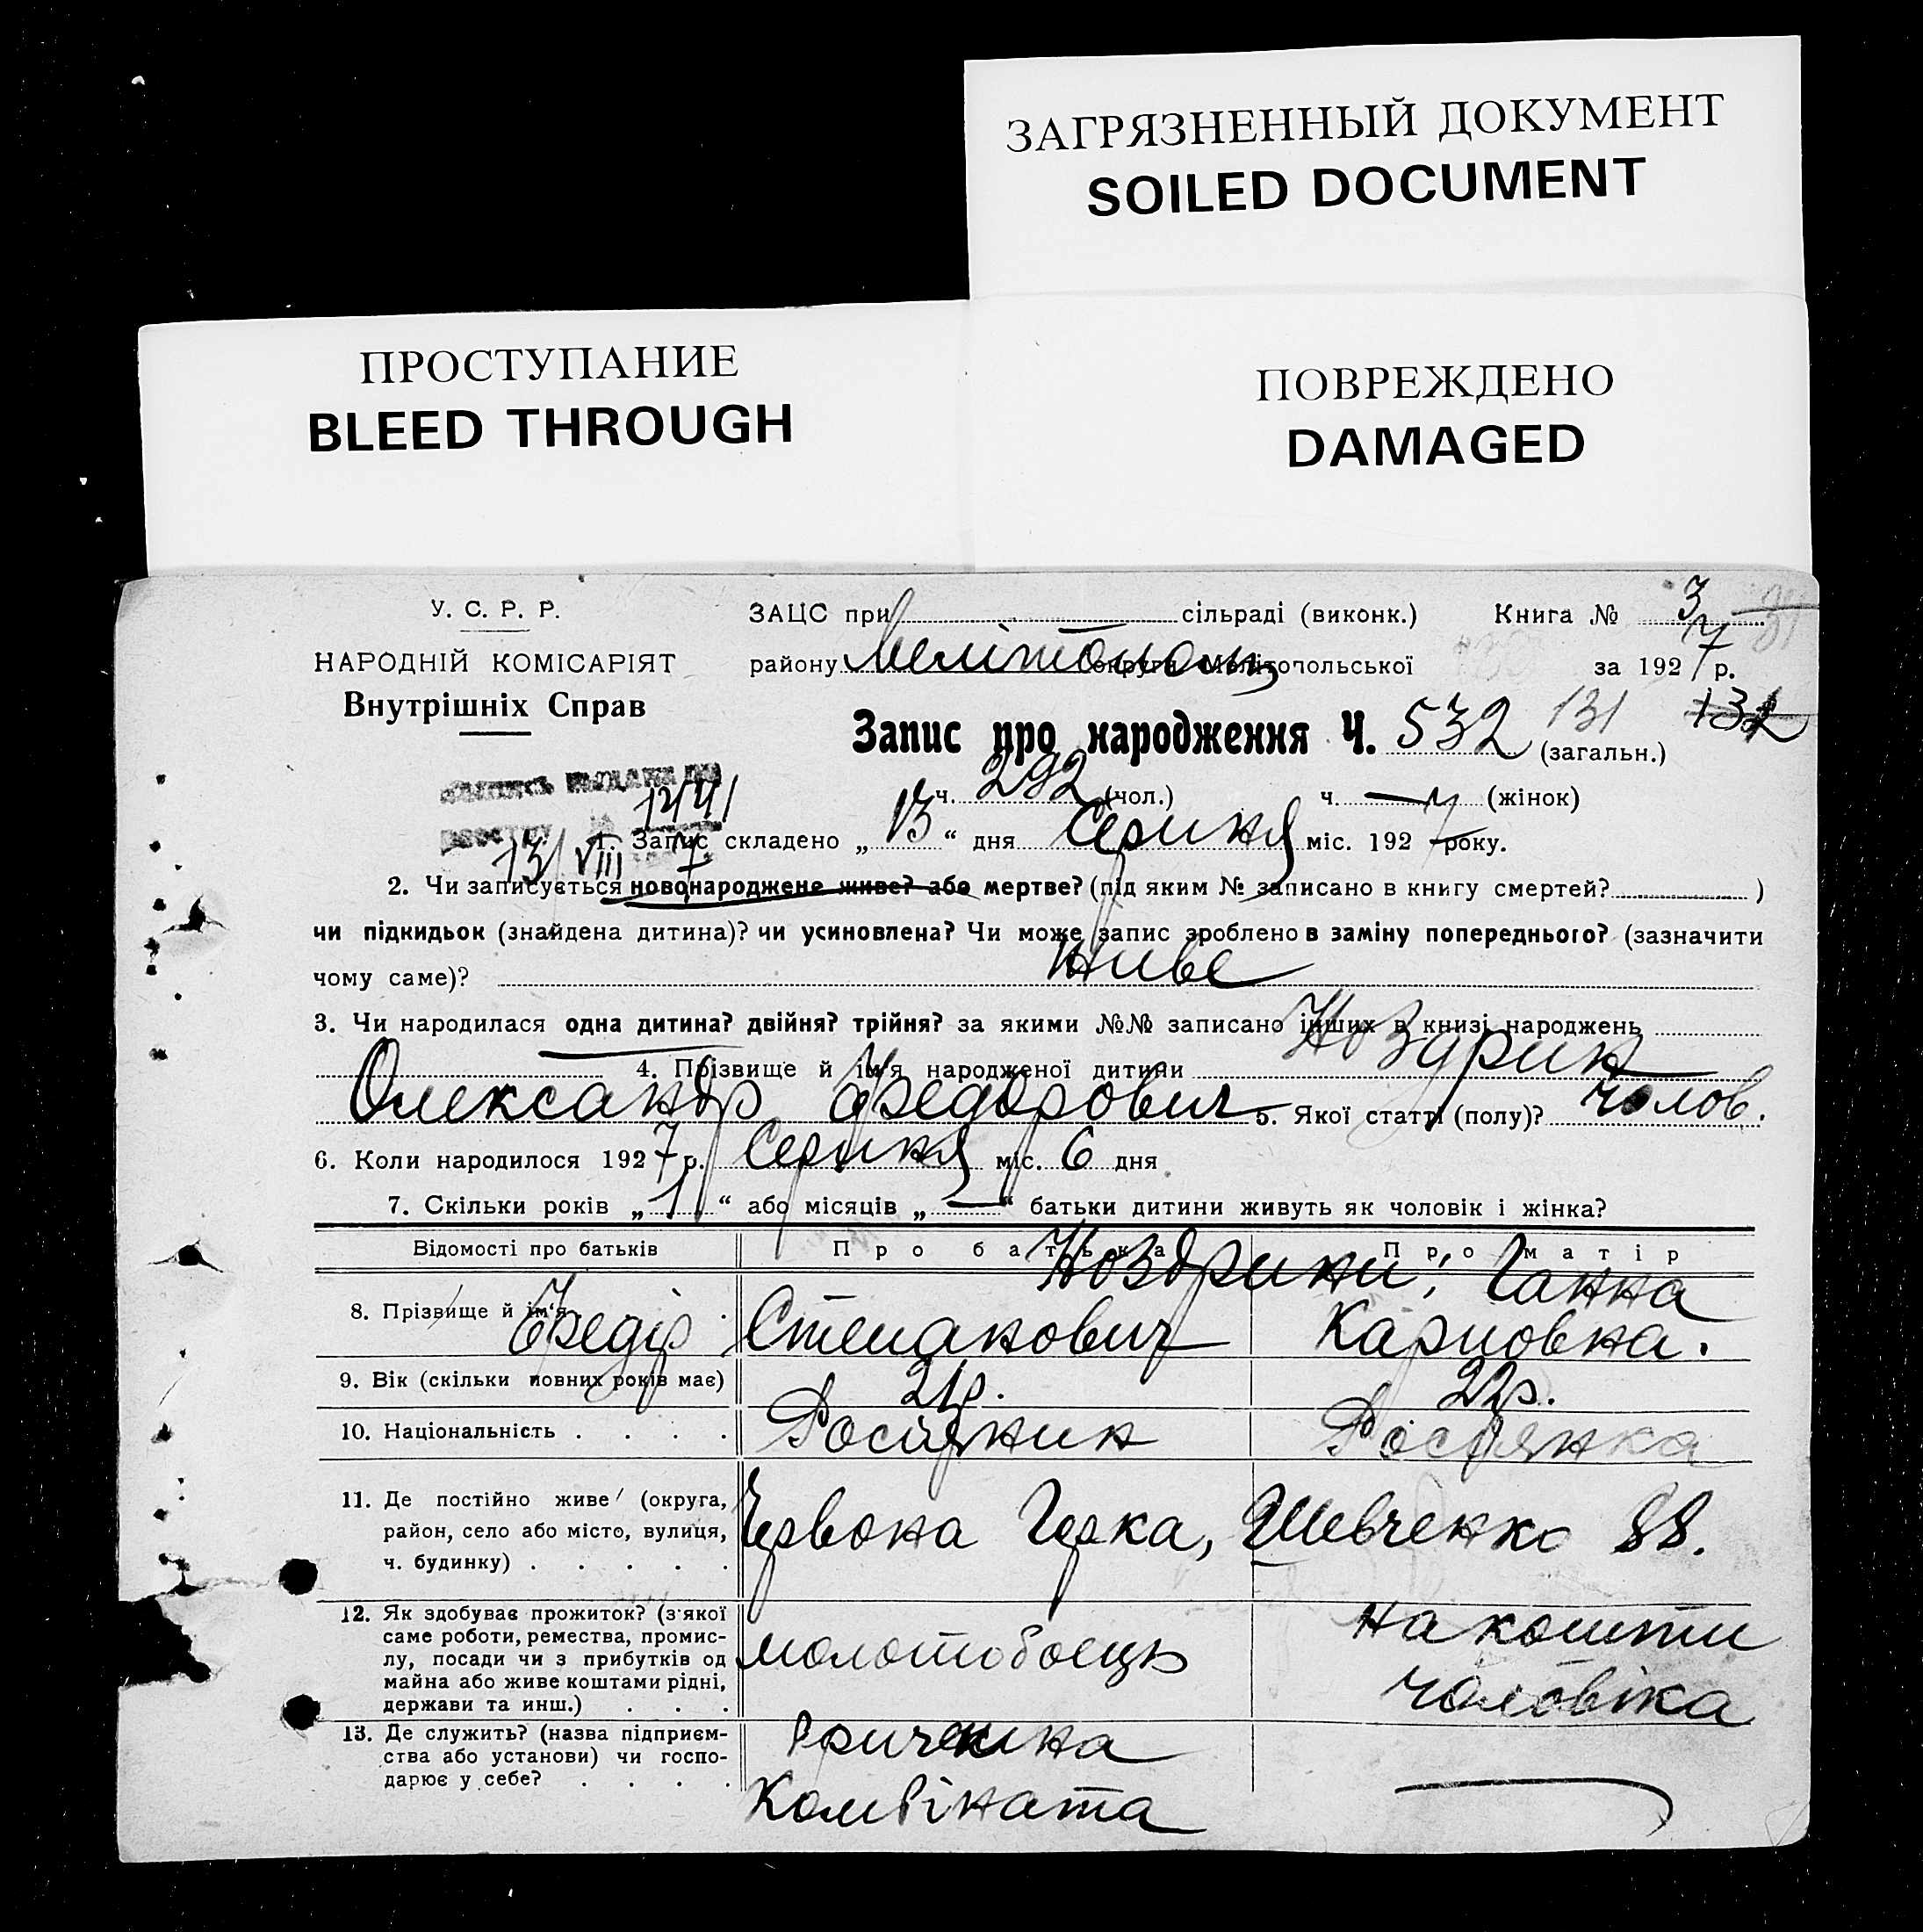 ЗАГРЯЗНЕННЫЙ ДОКУМЕНТ
SOILED DOCUMENT
ПРОСТУПАНИЕ
BLEED THROUGH
ПОВРЕЖДЕНО
DAMAGED
У. С. Р. Р.
НАРОДНІЙ КОМІСАРІЯТ
Внутрішніх Справ
ЗАЦС при сільраді (виконк.) Книга № 3
району Мелітополь округи Мелітопольської за 1927 р.
Запис про народження Ч. 532 131 132
(загальн.)
ч. 292 (чол.) ч. — (жінок)
1441
13/VIII 7
1. Запис складено „13“ дня Серпня міс. 1927 року.
2. Чи записується новонароджене живе? або мертве? (під яким № записано в книгу смертей? )
чи підкидьок (знайдена дитина)? чи усиновлена? Чи може запис зроблено в заміну попереднього? (зазначити
чому саме)? Живе
3. Чи народилася одна дитина? двійня? трійня? за якими №№ записано інших в книзі народжень
4. Прізвище й ім'я народженої дитини Ноздрин
Олександр Федорович 5. Якої статті (полу)? Чолов.
6. Коли народилося 1927 р. Серпня міс. 6 дня
7. Скільки років „1“ або місяців „—“ батьки дитини живуть як чоловік і жінка?
Відомості про батьків Про батька Про матір
8. Прізвище й ім'я Ноздрини: Ганна
Федір Степанович Карповна.
9. Вік (скільки повних років має) 21р. 22р.
10. Національність . . . . Росіянин Росіянка
11. Де постійно живе (округа,
район, село або місто, вулиця,
ч. будинку) . . . . .
Червона Гірка, Шевченко 88.
12. Як здобуває прожиток? (з якої
саме роботи, ремества, промис-
лу, посади чи з прибутків од
майна або живе коштами рідні,
держави та инш.) . . .
молотобоєць
на кошти
чоловіка
13. Де служить? (назва підприєм-
ства або установи) чи госпо-
дарює у себе? . . . .
Комбіната